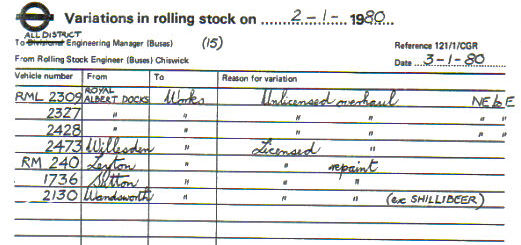 Variations in rolling stock on 2-1-1980
ALL DISTRICT
To Divisional Engineering Manager (Buses) (15) Reference 121/1/CGR
From Rolling Stock Engineer (Buses) Chiswick Date 3-1-80
Vehicle number From To Reason for variation
RML 2309 ROYAL ALBERT DOCKS Works Unlicensed overhaul NE to E
2327 " " " " " "
2428 " " " " " "
2473 Willesden " Licensed "
RM 240 Leyton " " repaint
1736 Sutton " " "
2130 Wandsworth " " " (ex SHILLIBEER)